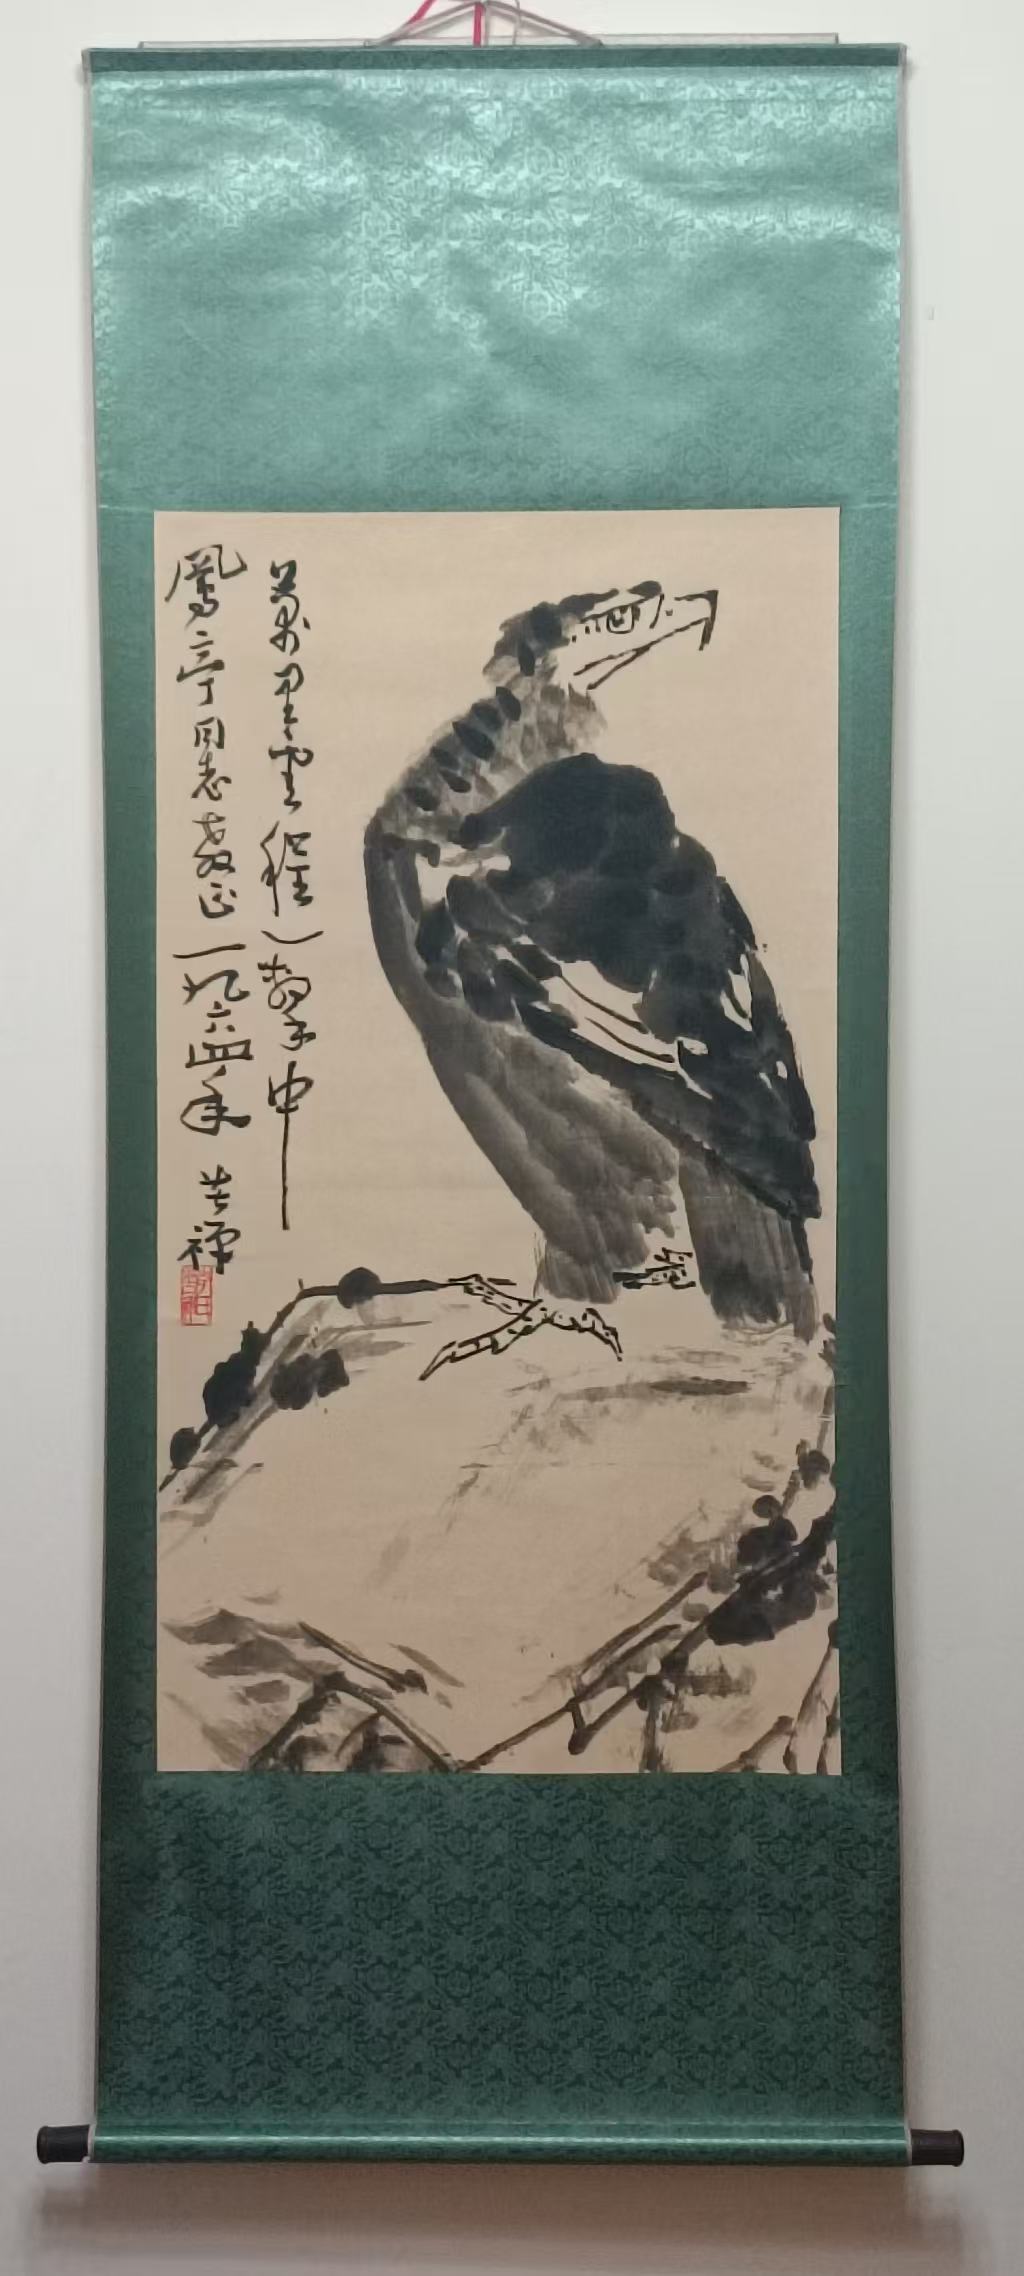 萬里雲程一擊中
鳳亭同志教正一九六四年 苦禪